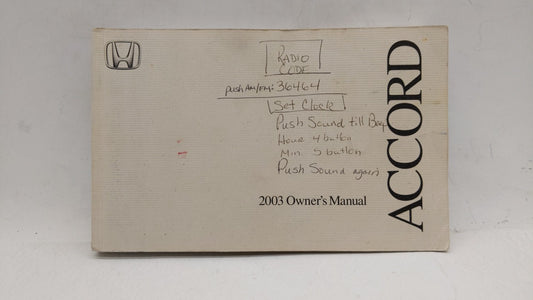 RADIO
CODE
Push AM/FM: 36464
Set Clock
Push Sound till Beep
Hour 4 button
Min 5 button
Push Sound again
2003 Owner's Manual
ACCORD